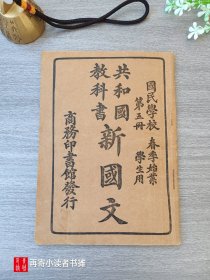 國民學校 春季始業
第五冊 學生用
共和國
教科書
新國文
商務印書館發行
再寄小读者书摊